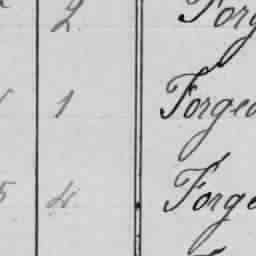 2 Forg
1 Forged
5 4 Forge